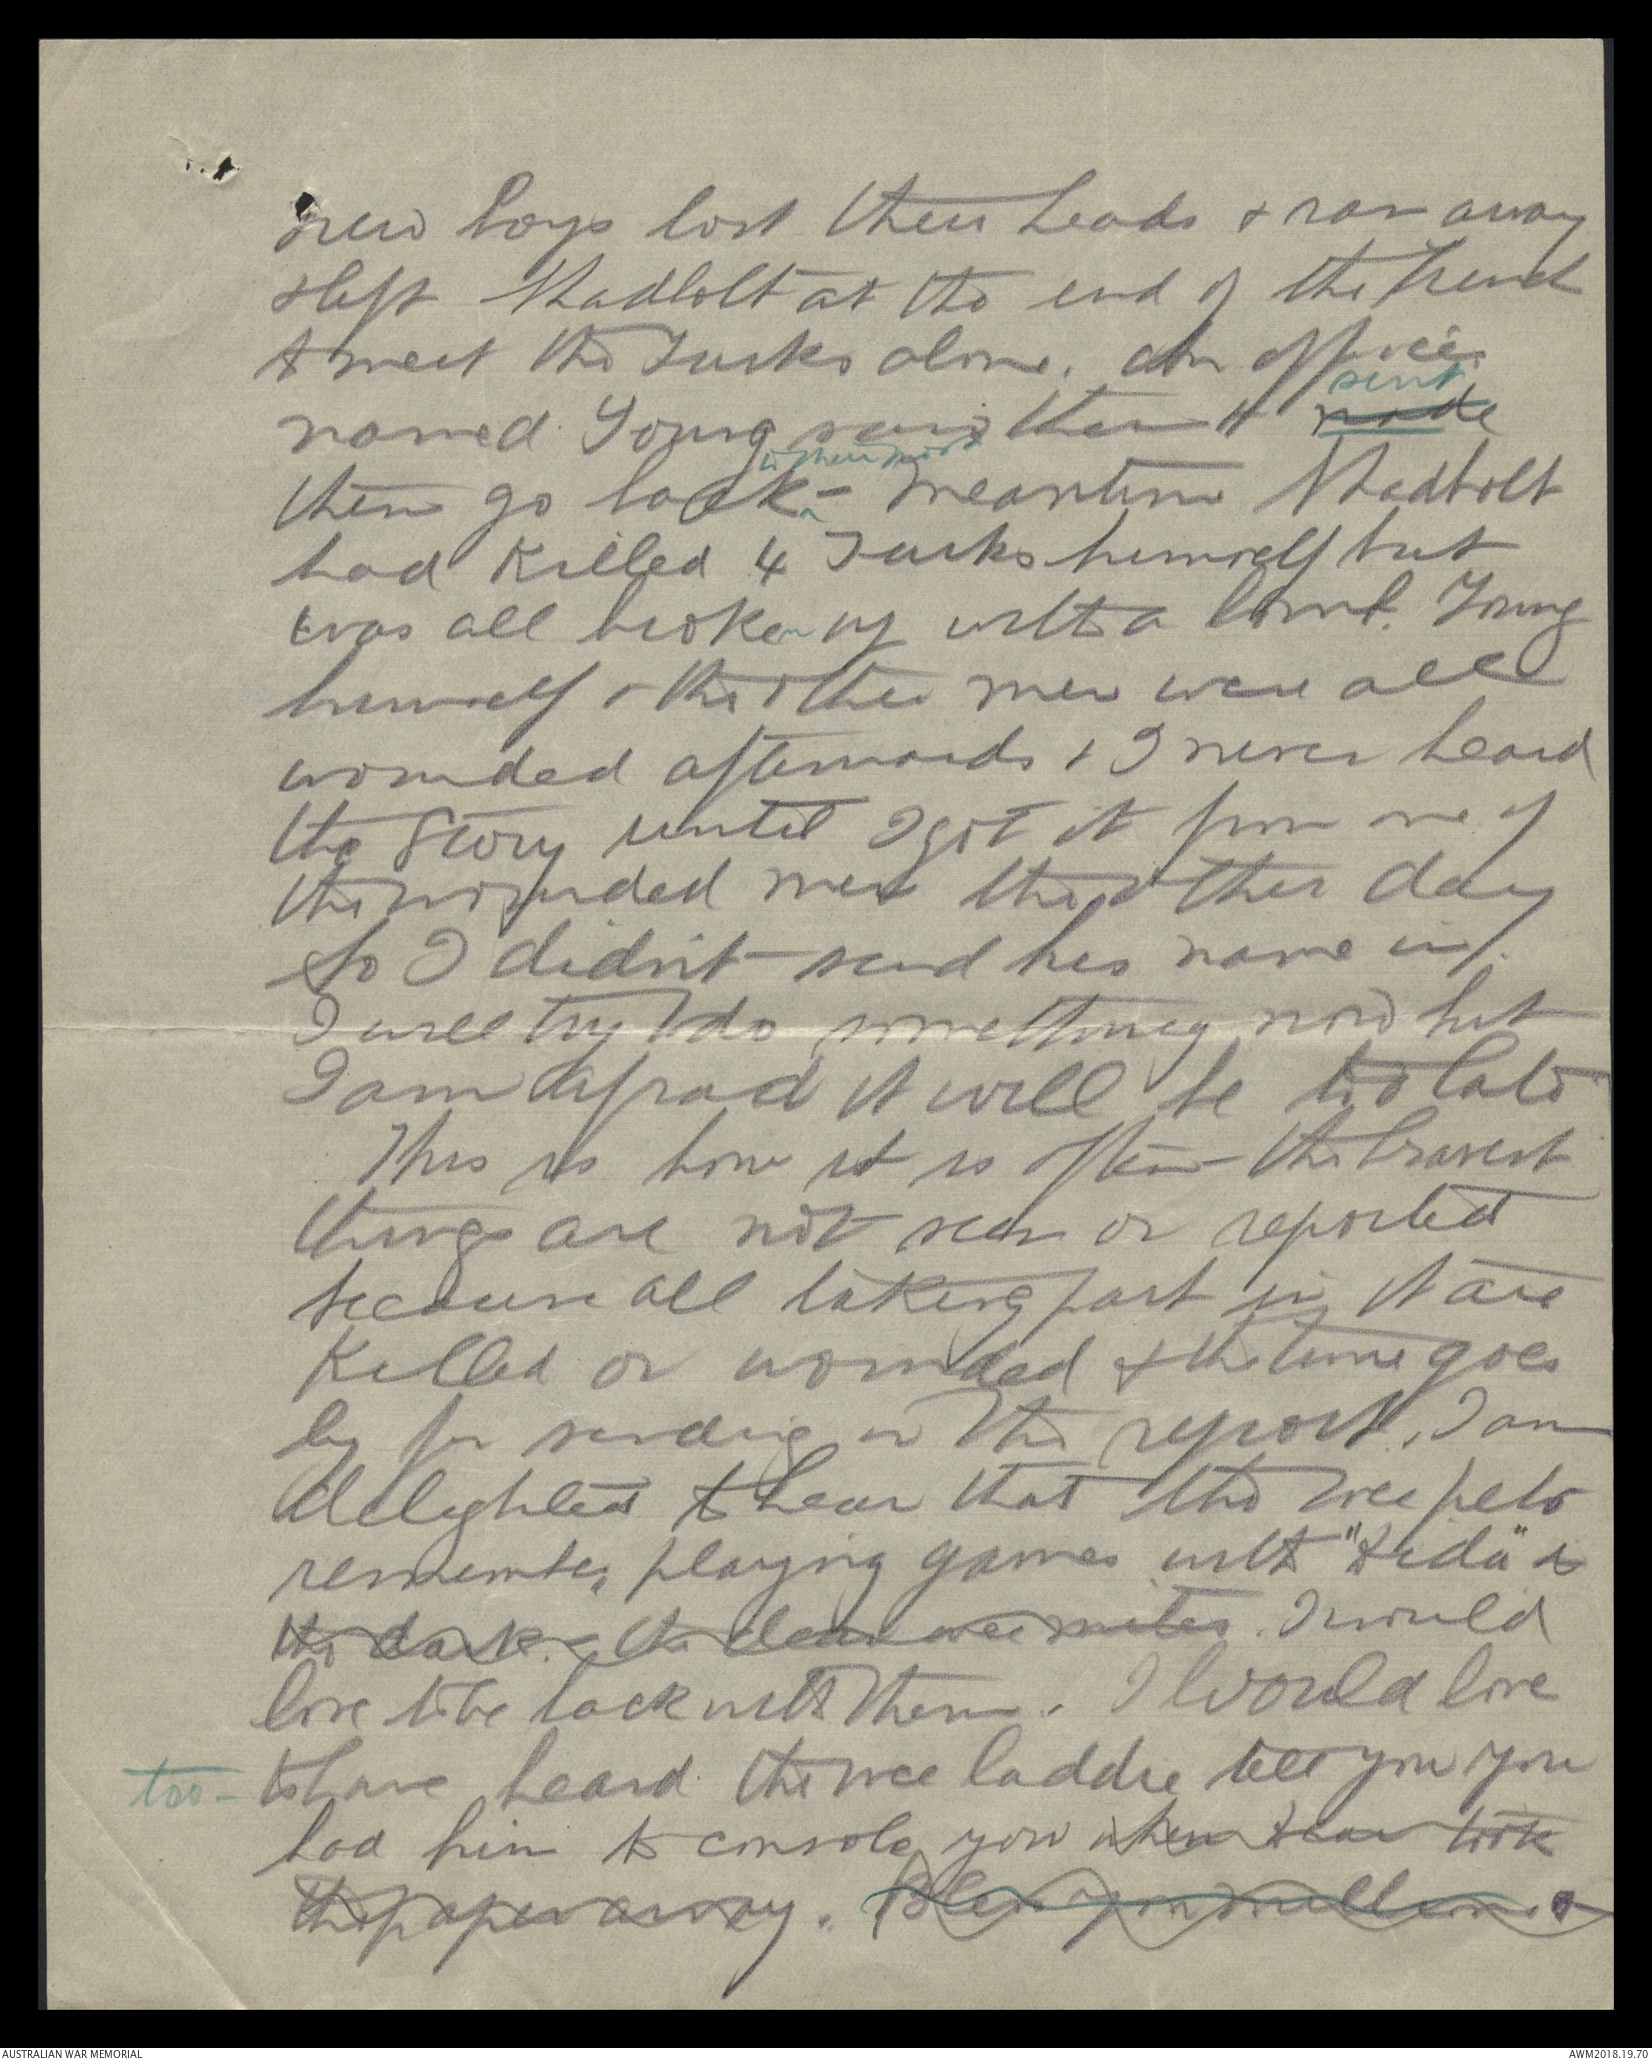 new boys lost their heads & ran away
& left Shadbolt at the end of the trench
to meet the Turks alone. An officer
sent
named Young saw them & made
to their post
them go back - Meantime Shadbolt
had killed 4 Turks himself but
was all broken up with a bomb. Young
himself & the other men were all
wounded afterwards & I never heard
the story until I got it from one of
the wounded men the other day
so I didn't send his name in.
I will try to do something now but
I am afraid it will be too late
This is how it is often - the bravest
things are not seen or reported
because all taking part in it are
killed or wounded & the time goes
by for sending in the report. I am
delighted to hear that the wee pets
remember playing games with "Dida" in
the dark. the dear wee mites. I would
love to be back with them. I would love
too - to have heard the wee laddie tell you you
had him to console you when Dear took
the paper away. Bless you
AUSTRALIAN WAR MEMORIAL
AWM2018.19.70